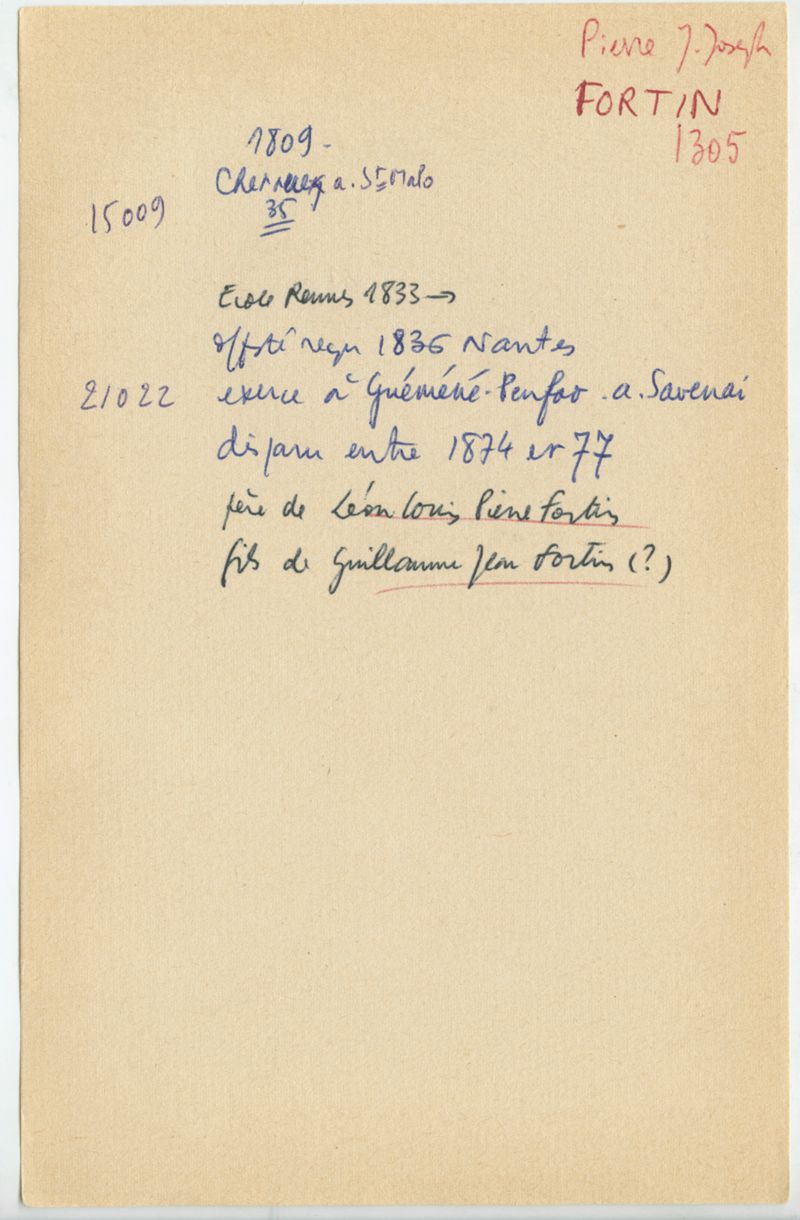 Pierre J. Joseph
FORTIN
1305
1809 -
Cherrueix a. St Malo
35
15009
Ecole Rennes 1833 →
offsté reçu 1836 Nantes
21022 exerce à Guéméné-Penfao . a. Savenai
disparu entre 1874 et 77
père de Léon Louis Pierre Fortin
fils de Guillaume Jean Fortin (?)